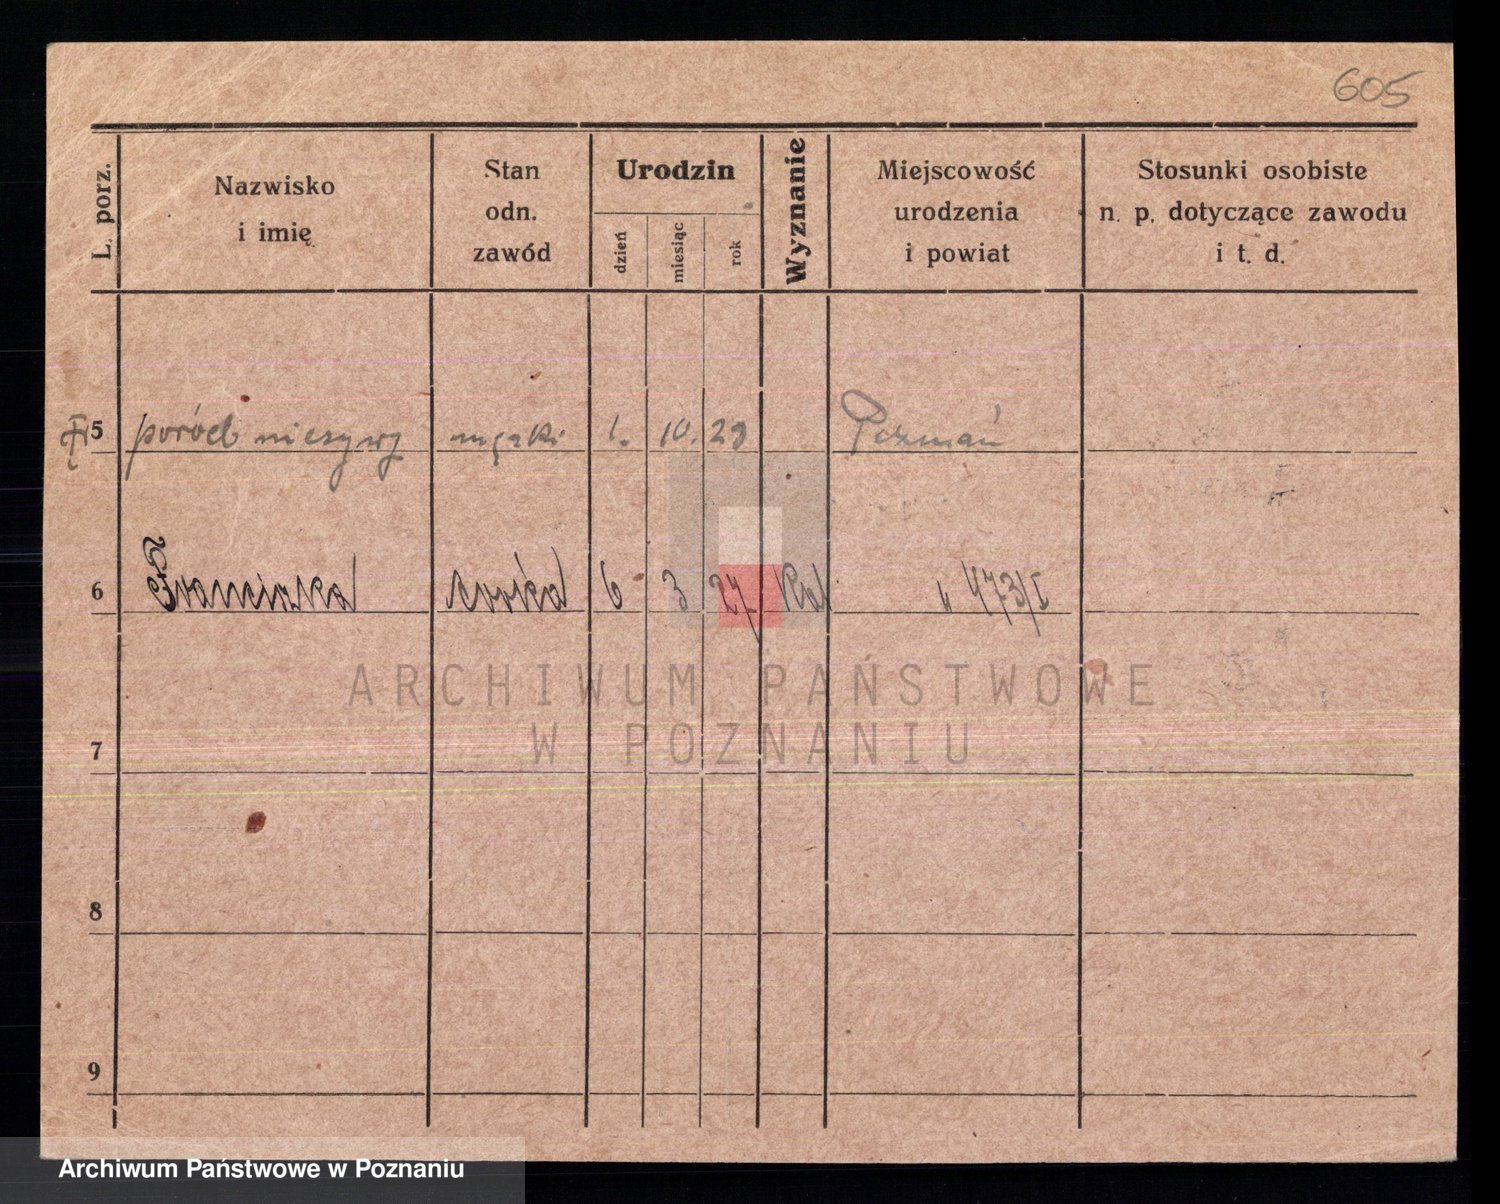 605
L. porz.
Nazwisko
i imię
Stan
odn.
zawód
Urodzin
dzień
miesiąc
rok
Wyznanie
Miejscowość
urodzenia
i powiat
Stosunki osobiste
n. p. dotyczące zawodu
i t. d.
5 poród nieżywy męzki 1. 10. 29 Poznań
6 Franciszka córka 6 3 27 Kat " 473/I
ARCHIWUM PAŃSTWOWE
W POZNANIU
7
8
9
Archiwum Państwowe w Poznaniu